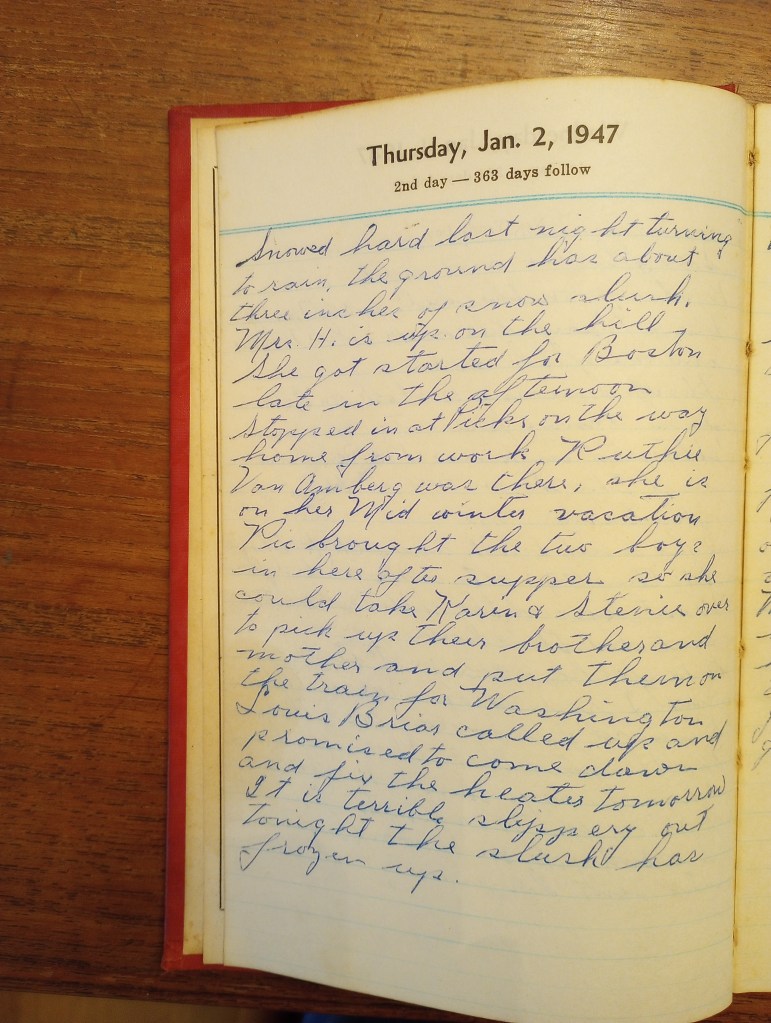 Thursday, Jan. 2, 1947
2nd day — 363 days follow
Snowed hard last night turning
to rain, the ground has about
three inches of snow slush.
Mrs. H. is up on the hill
She got started for Boston
late in the afternoon
Stopped in at Picks on the way
home from work Ruthie
Van Amberg was there, she is
on her Mid winter vacation
Pic brought the two boys
in here after supper so she
could take Karin & Stevie over
to pick up their brother and
mother and put them on
the train for Washington
Louis Briar called up and
promised to come down
and fix the heater tomorrow
It is terrible slippery out
tonight the slush has
frozen up.